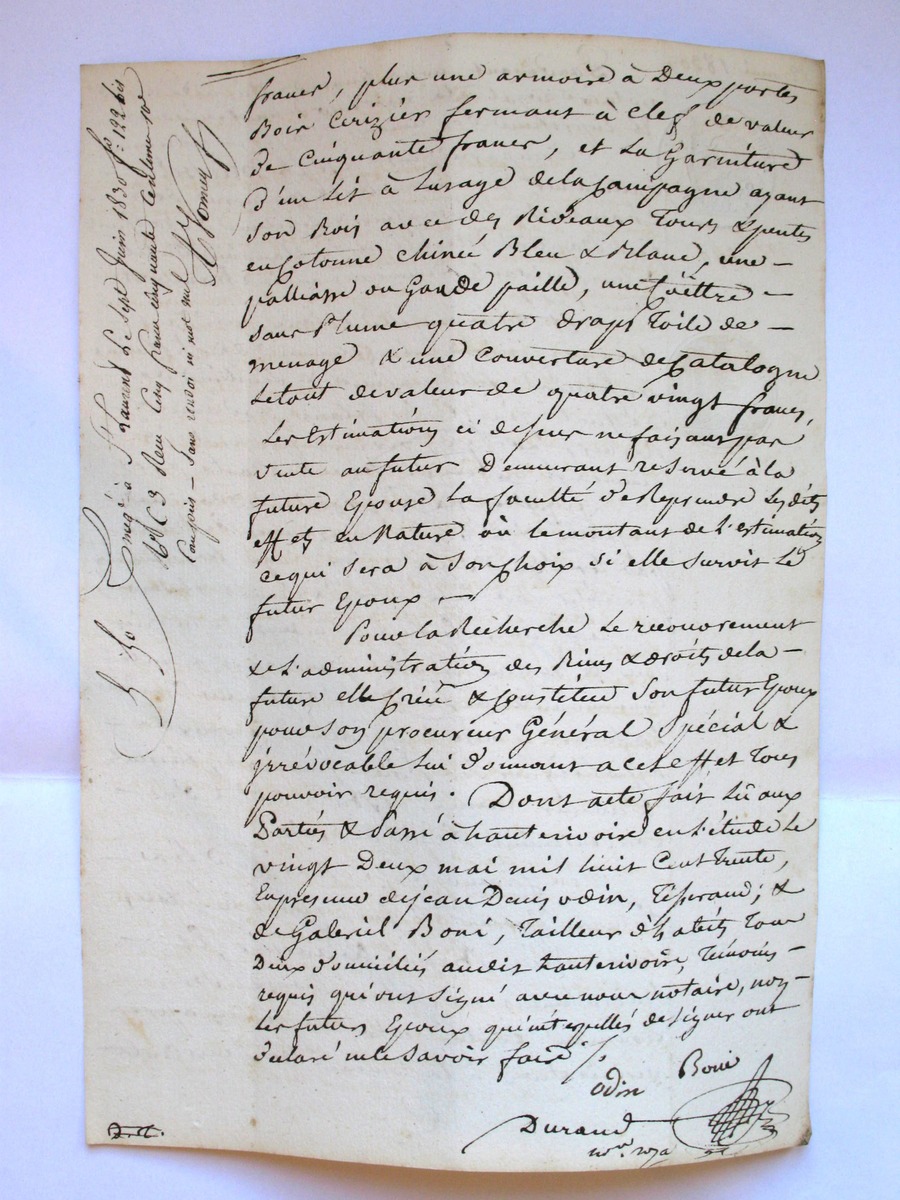 francs, plus une armoire à Deux portes
Bois Cerizier fermant à clef de valeur
de Cinquante francs, et La Garniture
D'un Lit à Lusage de la Campagne ayant
son Bois avec des Rideaux Tours & pentes
en Cotonne chinée Bleu & Blanc, une
palliasse ou Gar de paille, une Coëttre
sans Plume quatre draps Toile de
menage & une Couverture de Catalogne
Le tout de valeur de quatre vingt francs,
Les Estimations ci dessus ne faisant pas
vente au futur Demeurant reservé à la
future Epouse La faculté de Reprendre Les dits
effets en Nature où le montant de L'estimation
ce qui sera à Son Choix si elle survit Le
futur Epoux
Pour la Recherche Le recouvrement
& L'administration des Biens & droits de la
future elle Créé & Constitue Son futur Epoux
pour son procureur Général Spécial &
irrévocable Lui donnant a cet effet Tous
pouvoir requis. Dont acte fait Lû aux
Parties & Passé à hauterivoire en L'étude Le
vingt Deux mai mil huit Cent Trente,
En presence de jean Denis odin, Tisserand; &
de Gabriel Boni, Tailleur d'habits Tous
Deux domiciliés audit hauterivoire, Témoins
requis qui ont signé avec nous notaire, non
Les futurs Epoux qui interpellés de signer ont
déclaré ne le savoir faire
odin Boni
Durand
nore. roya
à St Laurent Le Sept Juin 1830 fo. 122
C 3 Reçu Cinq francs cinquante Centimes
Sans renvoi ni mot nul